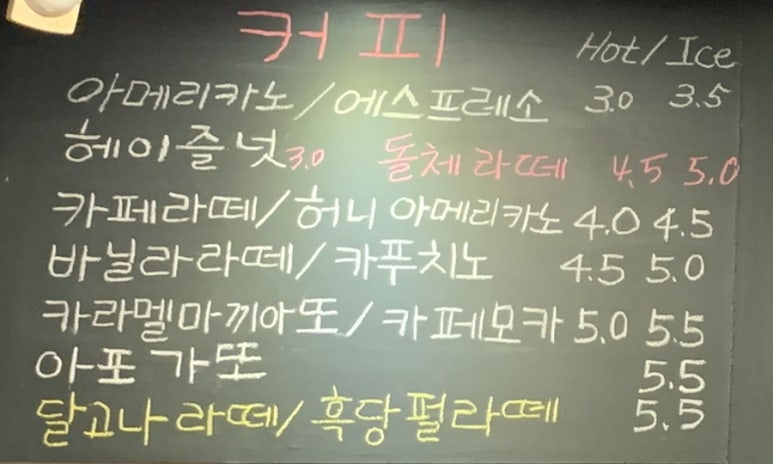 커피 Hot/Ice
아메리카노/에스프레소 3.0 3.5
헤이즐넛 3.0 돌체라떼 4.5 5.0
카페라떼/허니아메리카노 4.0 4.5
바닐라라떼/카푸치노 4.5 5.0
카라멜마끼아또/카페모카 5.0 5.5
아포가또 5.5
달고나라떼/흑당펄라떼 5.5